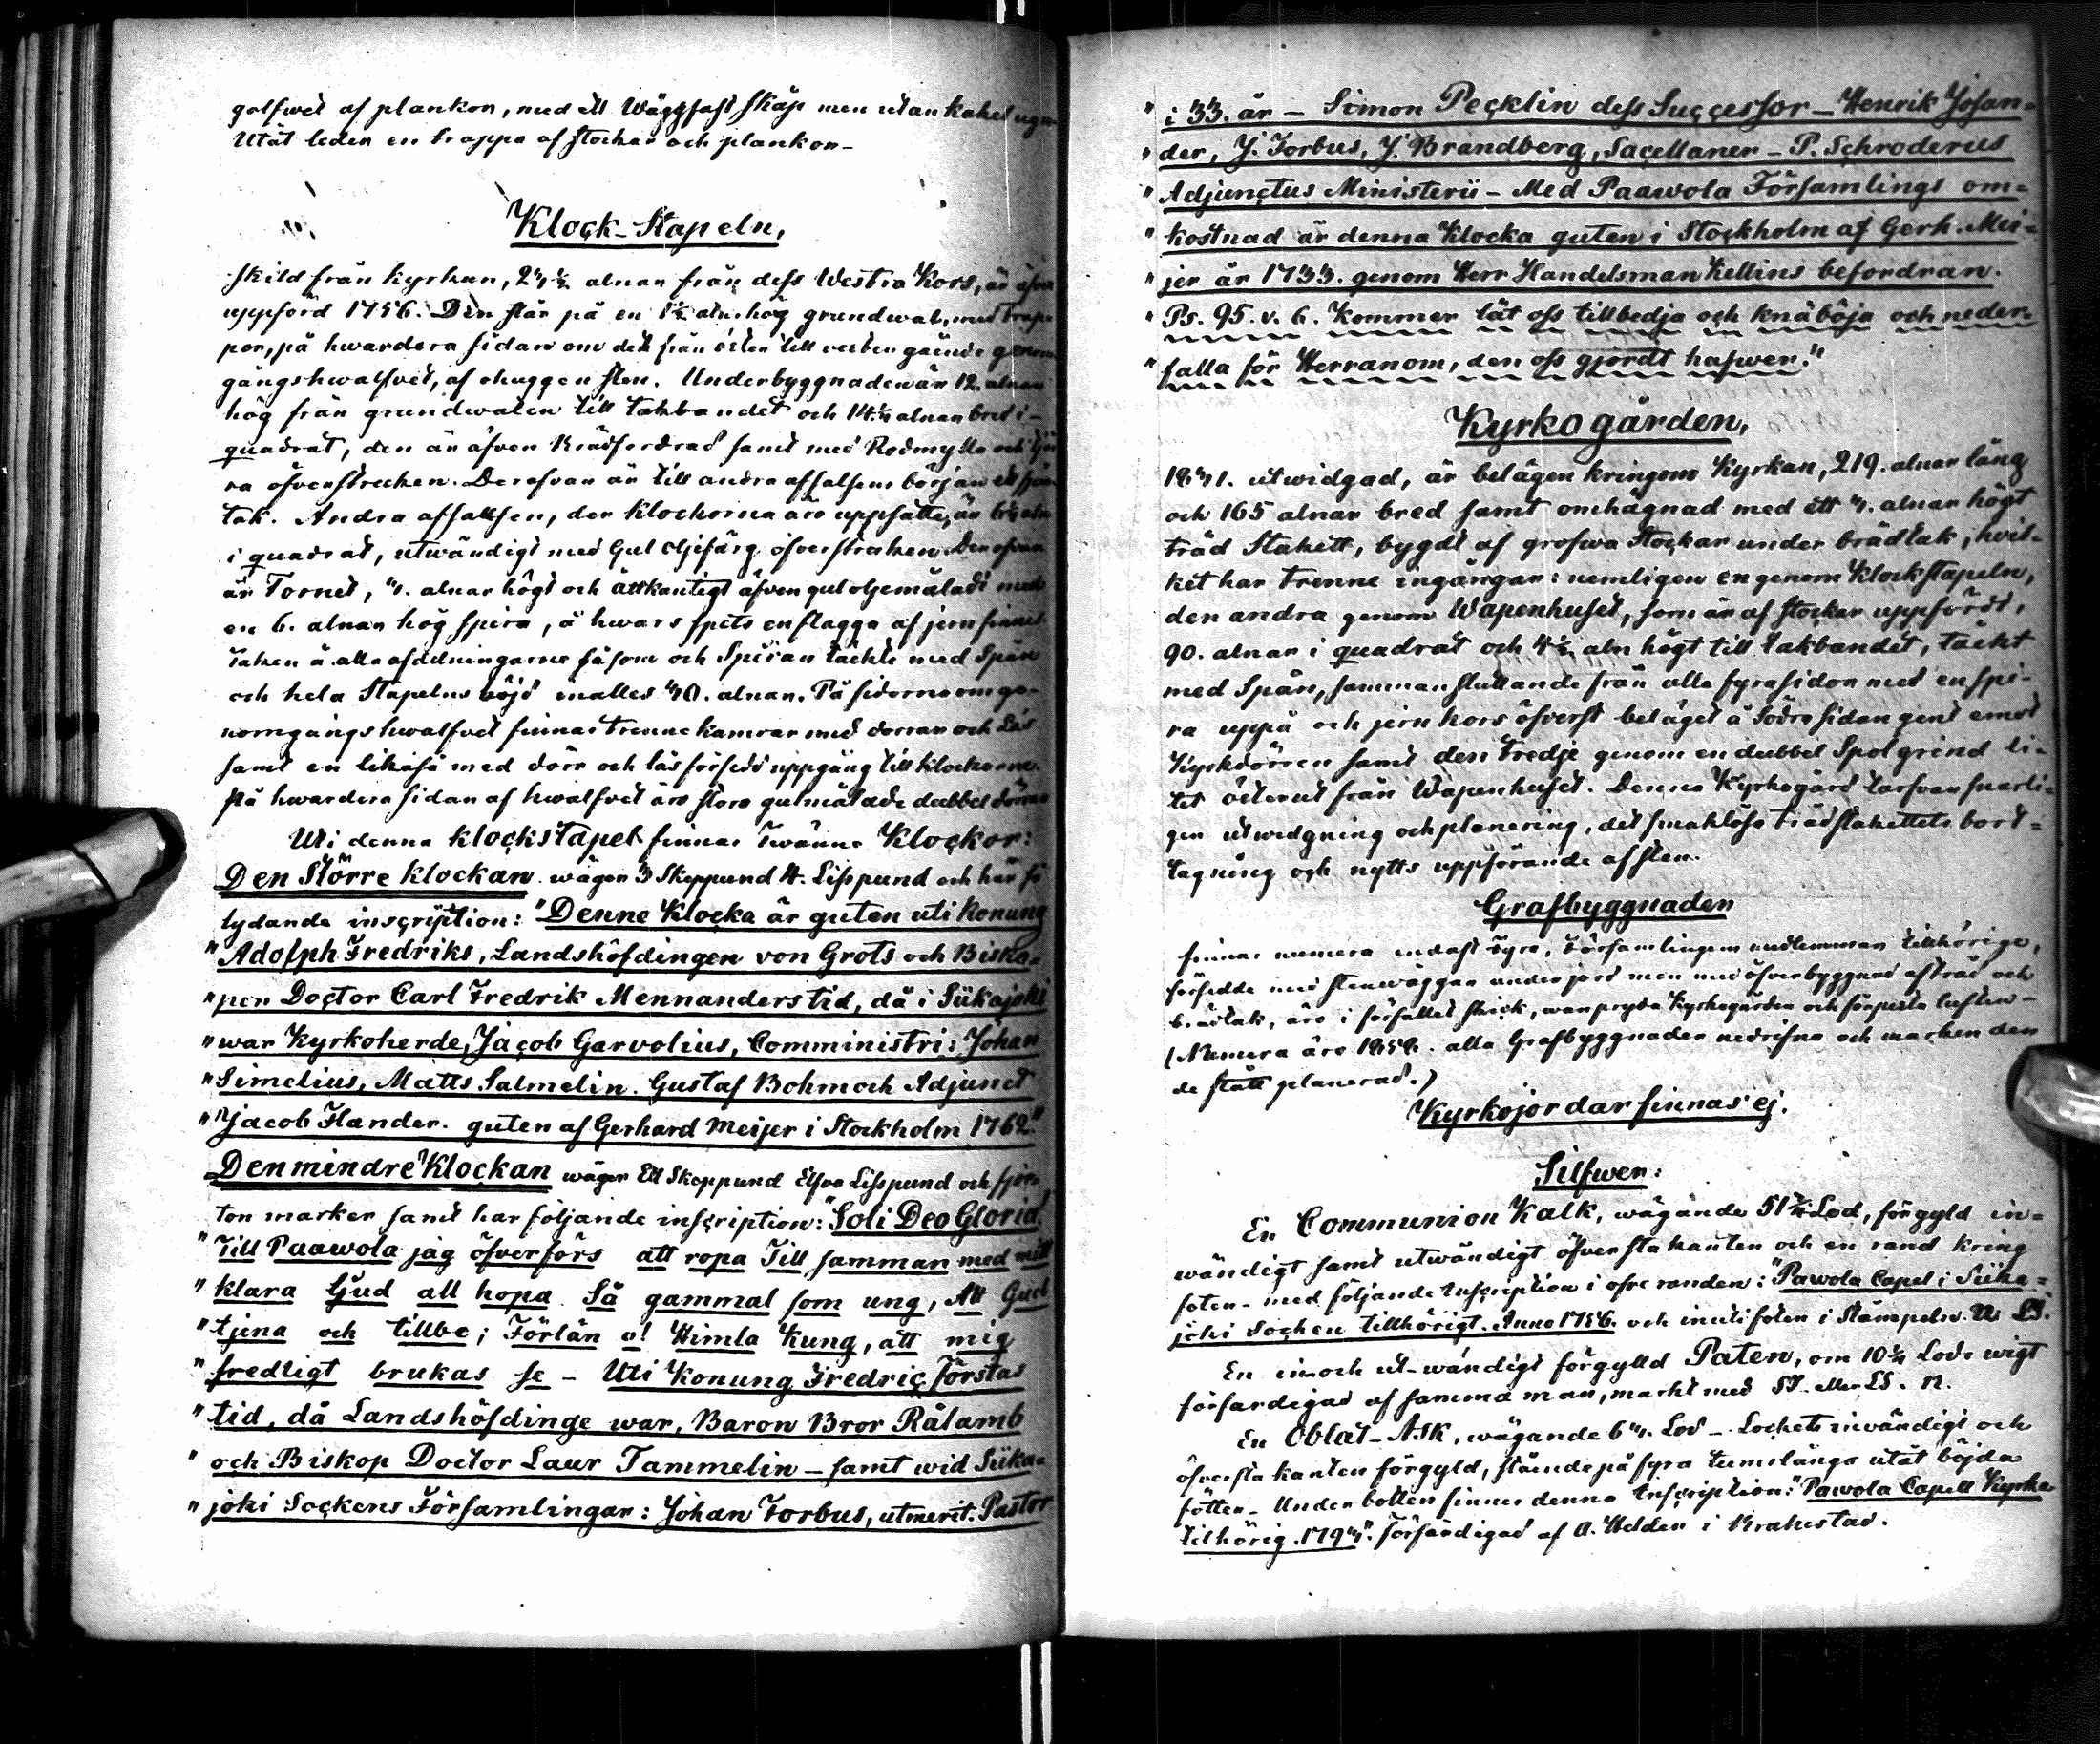 golfwet af plankor, med ett Wäggfast skåp men utan kakelugn
Utåt leden en trappa af stockar och plankor -
Klock-Stapeln,
skild från kyrkan, alnar från dess Westra Kors, är äfven
uppförd 1756. Den står på en 1½ aln hög grundwal, med trap-
por, på hwardera sidan om det från öster till vester gående genom
gångshwalfvet, af ohuggen sten. Underbyggnaden är 12. alnar
hög från grundwalen till takbandet och 14.¼ alnar bred i-
quadrat, den är äfven brädfordrad samt med Rödmylla och tjä
ra öfverstruken. Derofvan är till andra affalsens början ett spån
tak. Andra affallsen, der klockorna äro uppsatte, är 6½ aln
i quadrat, utwändigt med Gul Oljefärg öfverstruken. Derofvan
är Tornet, alnar högt och åttkantigt äfven gul oljemåladt med
en 6. alnar hög spira, å hwars spets en flagga af jern finnes
Taken å alla afdelningarne såsom och Spiran täckte med Spån
och hela Stapelns höjd inalles alnar. På sidorna om ge-
nomgångshwalfvet finnas trenne kamrar med dörrar och Lås
samt en likaså med dörr och lås försedd uppgång till klockorna.
På hwardera sidan af hwalfvet äro stora gulmålade dubbel dörrar
Uti denna klockstapel finnas Twänne Klockor:
Den Större klockan wäger 3 Skeppund 4. Lispund och här så
lydande inscription: "Denne Klocka är guten uti Konung
" Adolph Fredriks, Landshöfdingen von Grots och Bisko-
" pen Doctor Carl Fredrik Mennanders tid, då i Siikajoki
" war Kyrkoherde, Jacob Garvolius, Comministri: Johan
" Simelius, Matts Salmelin. Gustaf Bohm och Adjunct
" Jacob Flander. guten af Gerhard Meijer i Stockholm 1762."
Den mindre Klockan wäger Ett Skeppund Elfva Lispund och fjor-
ton marker samt har följande inscription: "Soli Deo Gloria!
" Till Paawola jag öfverförs att ropa Till samman med mitt
" klara ljud all hopa Så gammal som ung, Att Gud
" tjena och tillbe; Förlän o! Himla Kung, att mig
" fredligt brukas se - Uti Konung Fredric förstas
" tid, då Landshöfdinge war, Baron Bror Rålamb
" och Biskop Doctor Laur Tammelin - samt wid Siika-
" joki Sockens Församlingar: Johan Forbus, utmerit. Pastor
" i 33. år - Simon Pecklin dess Successor - Henrik Josan-
" der, J. Forbus, J. Brandberg, Sacellaner - P. Schroderus
" Adjunctus Ministerii - Med Paawola Församlings om-
" kostnad är denna Klocka guten i Stockholm af Gerh. Mei-
" jer år 1733. genom Herr Handelsman Kellins befordran.
" Ps. 95. v. 6. Kommer låt oss tillbedja och knäböja och neder-
" falla för Herranom, den oss gjordt hafwer."
Kyrko gården,
utwidgad, är belägen kringom Kyrkan, 219. alnar lång
och 165 alnar bred samt omhägnad med ett alnar högt
träd Stakett, bygdt af grofwa Stockar under brädtak, hvil-
ket har trenne ingångar: nemligen en genom Klockstapeln,
den andra genom Wapenhuset, som är af stockar uppfördt,
90. alnar i quadrat och 4½ aln högt till takbandet, täckt
med Spån, sammanslutande från alla fyra sidor med en spi-
ra uppå och jernkors öfverst beläget å Södra sidan gent emot
Kyrkdörren samt den tredje genom en dubbel Spolgrind li-
tet österut från Wapenhuset. Denna Kyrkogård tarfvar snarli-
gen utwidgning och planering, det smaklösa trädstakettets bort-
tagning och nytts uppförande af sten.
Grafbyggnader
finnas numera endast fyra, Församlingens medlemmar tillhöriga,
försedde med stenwäggar under jord men med öfverbyggnad af träd och
brädtak, äro i förfallet skick, wanpryda Kyrkogården och förpesta luften -
(Numera äro alla Grafbyggnader nedrifna och marken den
de stått planerad.)
Kyrkojordar finnas ej.
Silfwer:
En Communion Kalk, wägande 51¾ Lod, förgyld in-
wändigt samt utwändigt öfversta kanten och en rand kring
foten - med följande Inscription i ofre randen: "Pawola Capel i Siika-
joki Sochen tillhörigt. Anno 1756. och inuti foten i Stämpeln. N. LS.
En in- och ut-wändigt förgylld Paten, om 10¾ Lods wigt
förfärdigad af samma man, märkt med SJ. eller LS. N.
En Oblat-Ask, wägande Lod - Lockets inwändigt och
öfversta kanten förgyld, stående på fyra tumslånga utåt böjda
fötter - Under botten finnes denna Inscription: "Pawola Capell Kyrka
tilhörig. Förfärdigad af A. Helden i Brahestad.